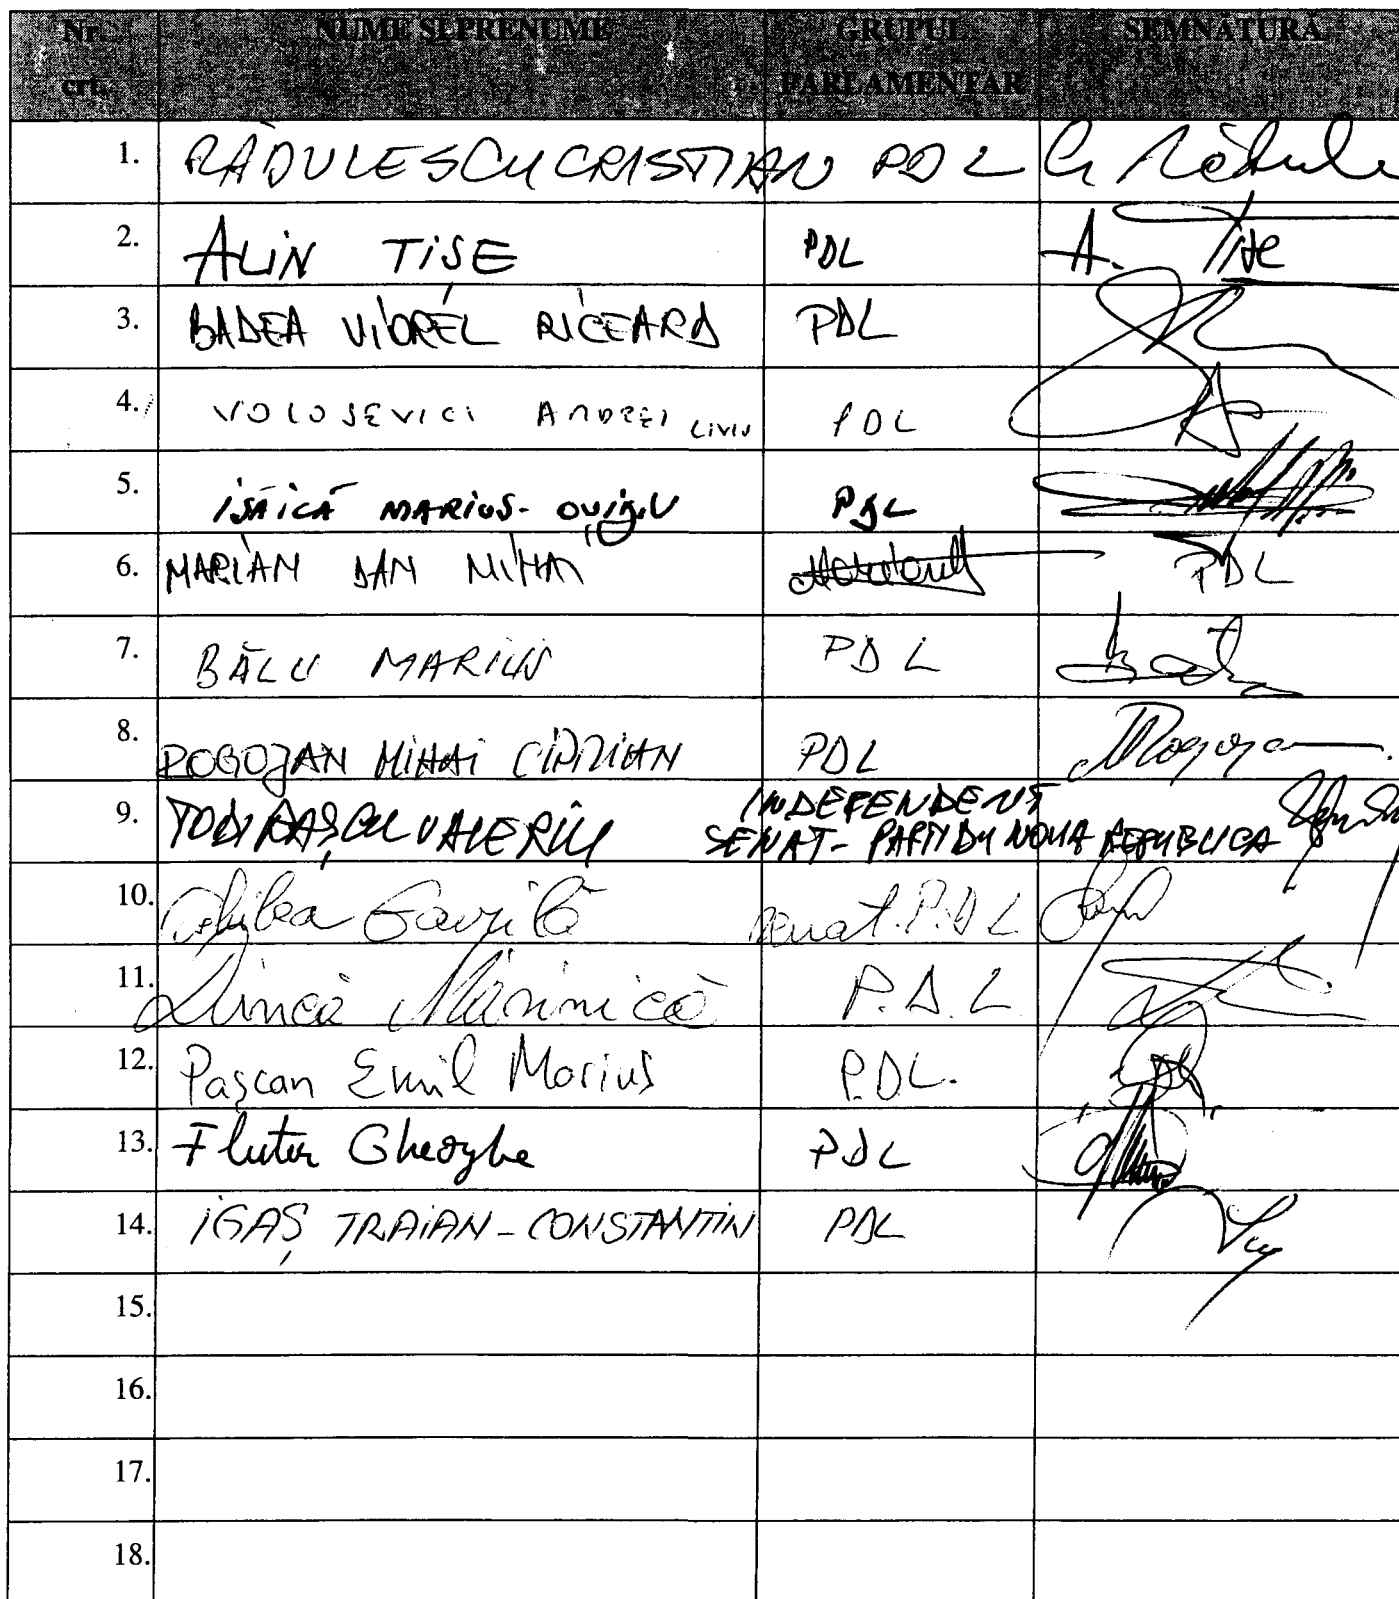 Nr. crt. NUME SI PRENUME GRUPUL PARLAMENTAR SEMNĂTURĂ
1. RĂDULESCU CRISTIAN PDL
2. ALIN TISE PDL A. Tise
3. BADEA VIOREL RICEARD PDL
4. VOLOSEVICI ANDREI LIVIU PDL
5. ISĂICĂ MARIUS-OVIDIU PDL
6. MARIAN DAN MIHAI PDL
7. BĂLU MARIUS PDL
8. POGOJAN MIHAI CIPRIAN PDL
9. TODIRAȘCU VALERIU INDEPENDENT
SENAT - PARTIDU NOUA REPUBLICA
10. Gavrilă senat. P.D.L
11. Dincă Mărinică P.D.L
12. Pașcan Emil Marius P.D.L.
13. Flutur Gheorghe PDL
14. IGAȘ TRAIAN-CONSTANTIN PDL
15.
16.
17.
18.